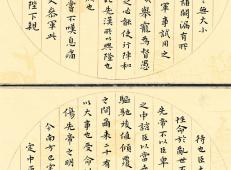 無大小
補闕漏有所
軍事試用
舉寵為督愚
之必能使行陣和
此先漢所以興隆也
嘗不嘆息痛
參軍此
陛下親
待也臣本
性命於亂世不
先帝不以臣卑
之中諮臣以當
驅馳後值傾覆
之間爾來二十有
以大事也受命
傷先帝之明
今南方已
定中